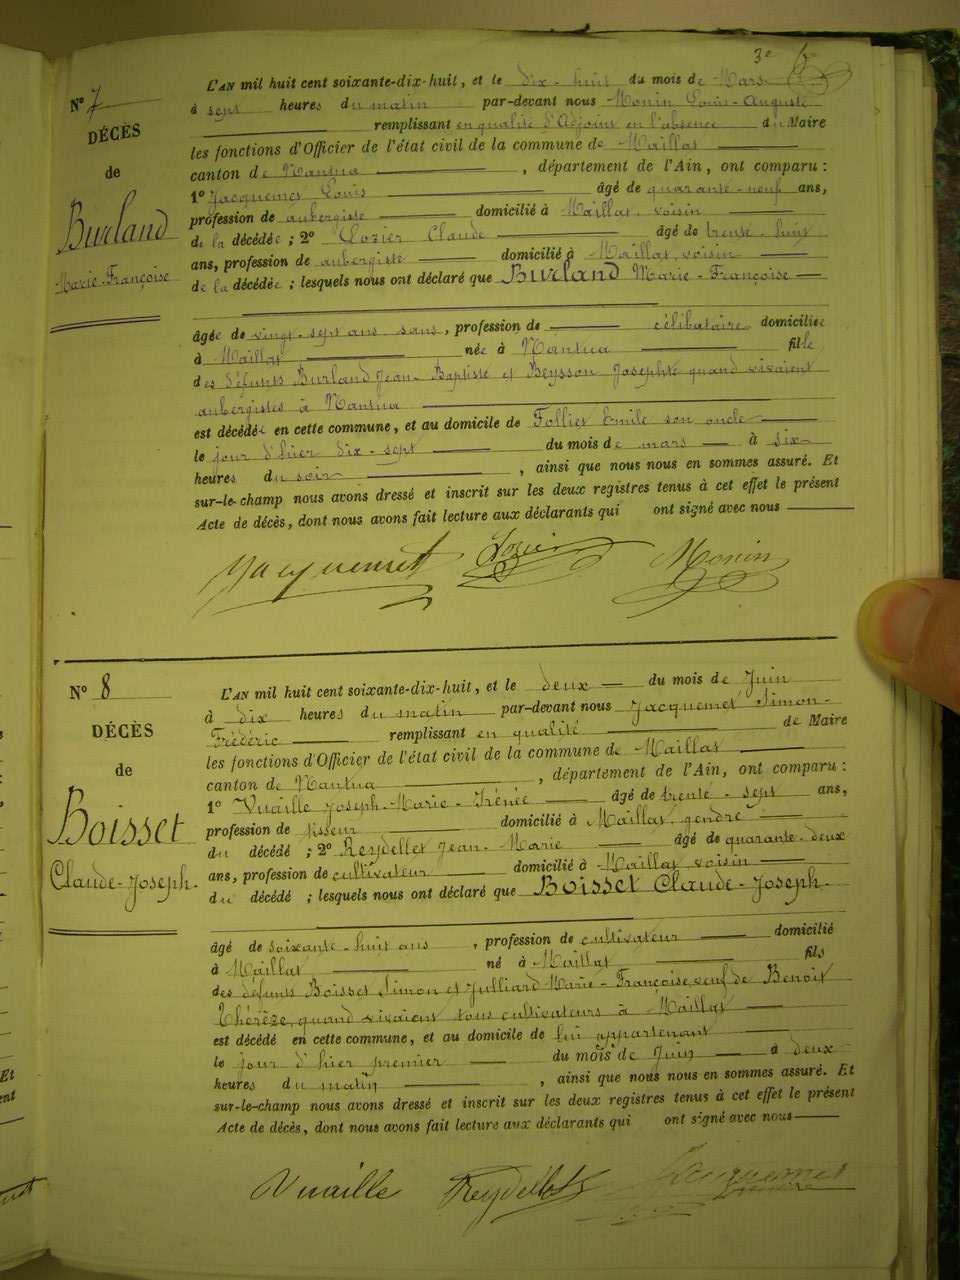 3e
N° 7
DÉCÈS
de
Burland
Marie-Françoise
L'AN mil huit cent soixante-dix-huit, et le dix-huit du mois de Mars
à sept heures du matin par-devant nous Monin Louis-Auguste
remplissant en qualité d'Adjoint en l'absence du Maire
les fonctions d'Officier de l'état civil de la commune de Maillat
canton de Nantua, département de l'Ain, ont comparu :
1° Jacquemet Louis âgé de quarante-neuf ans,
profession de aubergiste domicilié à Maillat, voisin
de la décédée ; 2° Lozier Claude âgé de trente-huit
ans, profession de aubergiste domicilié à Maillat, voisin
de la décédée ; lesquels nous ont déclaré que Burland Marie-Françoise
âgée de vingt-sept ans sans, profession de célibataire domiciliée
à Maillat née à Nantua fille
des défunts Burland Jean-Baptiste et Beysson Josephte quand vivaient
aubergistes à Nantua
est décédée en cette commune, et au domicile de Folliet Emile son oncle
le jour d'hier dix-sept du mois de mars à six
heures du soir, ainsi que nous nous en sommes assuré. Et
sur-le-champ nous avons dressé et inscrit sur les deux registres tenus à cet effet le présent
Acte de décès, dont nous avons fait lecture aux déclarants qui ont signé avec nous
Jacquemet Lozier Monin
N° 8
DÉCÈS
de
Boisset
Claude-Joseph.
L'AN mil huit cent soixante-dix-huit, et le deux du mois de Juin
à dix heures du matin par-devant nous Jacquemet Simon-
Frédéric remplissant en qualité de Maire
les fonctions d'Officier de l'état civil de la commune de Maillat
canton de Nantua, département de l'Ain, ont comparu :
1° Vuaille Joseph-Marie-Irénée âgé de trente-sept ans,
profession de tisseur domicilié à Maillat, gendre
du décédé ; 2° Reydellet Jean-Marie âgé de quarante-deux
ans, profession de cultivateur domicilié à Maillat voisin
du décédé ; lesquels nous ont déclaré que Boisset Claude-Joseph.
âgé de soixante-huit ans, profession de cultivateur domicilié
à Maillat né à Maillat fils
des défunts Boisset Simon et Julliard Marie-Françoise, veuf de Benoit
Thérèze, quand vivaient tous cultivateurs à Maillat
est décédé en cette commune, et au domicile de lui appartenant
le jour d'hier premier du mois de Juin à deux
heures du matin, ainsi que nous nous en sommes assuré. Et
sur-le-champ nous avons dressé et inscrit sur les deux registres tenus à cet effet le présent
Acte de décès, dont nous avons fait lecture aux déclarants qui ont signé avec nous
Vuaille Reydellet Jacquemet